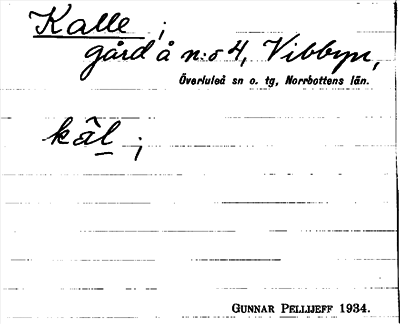 Kalle ;
gård å n:o 4, Vibbyn,
Överluleå sn o. tg, Norrbottens län.
kãl ;
GUNNAR PELLIJEFF 1934.